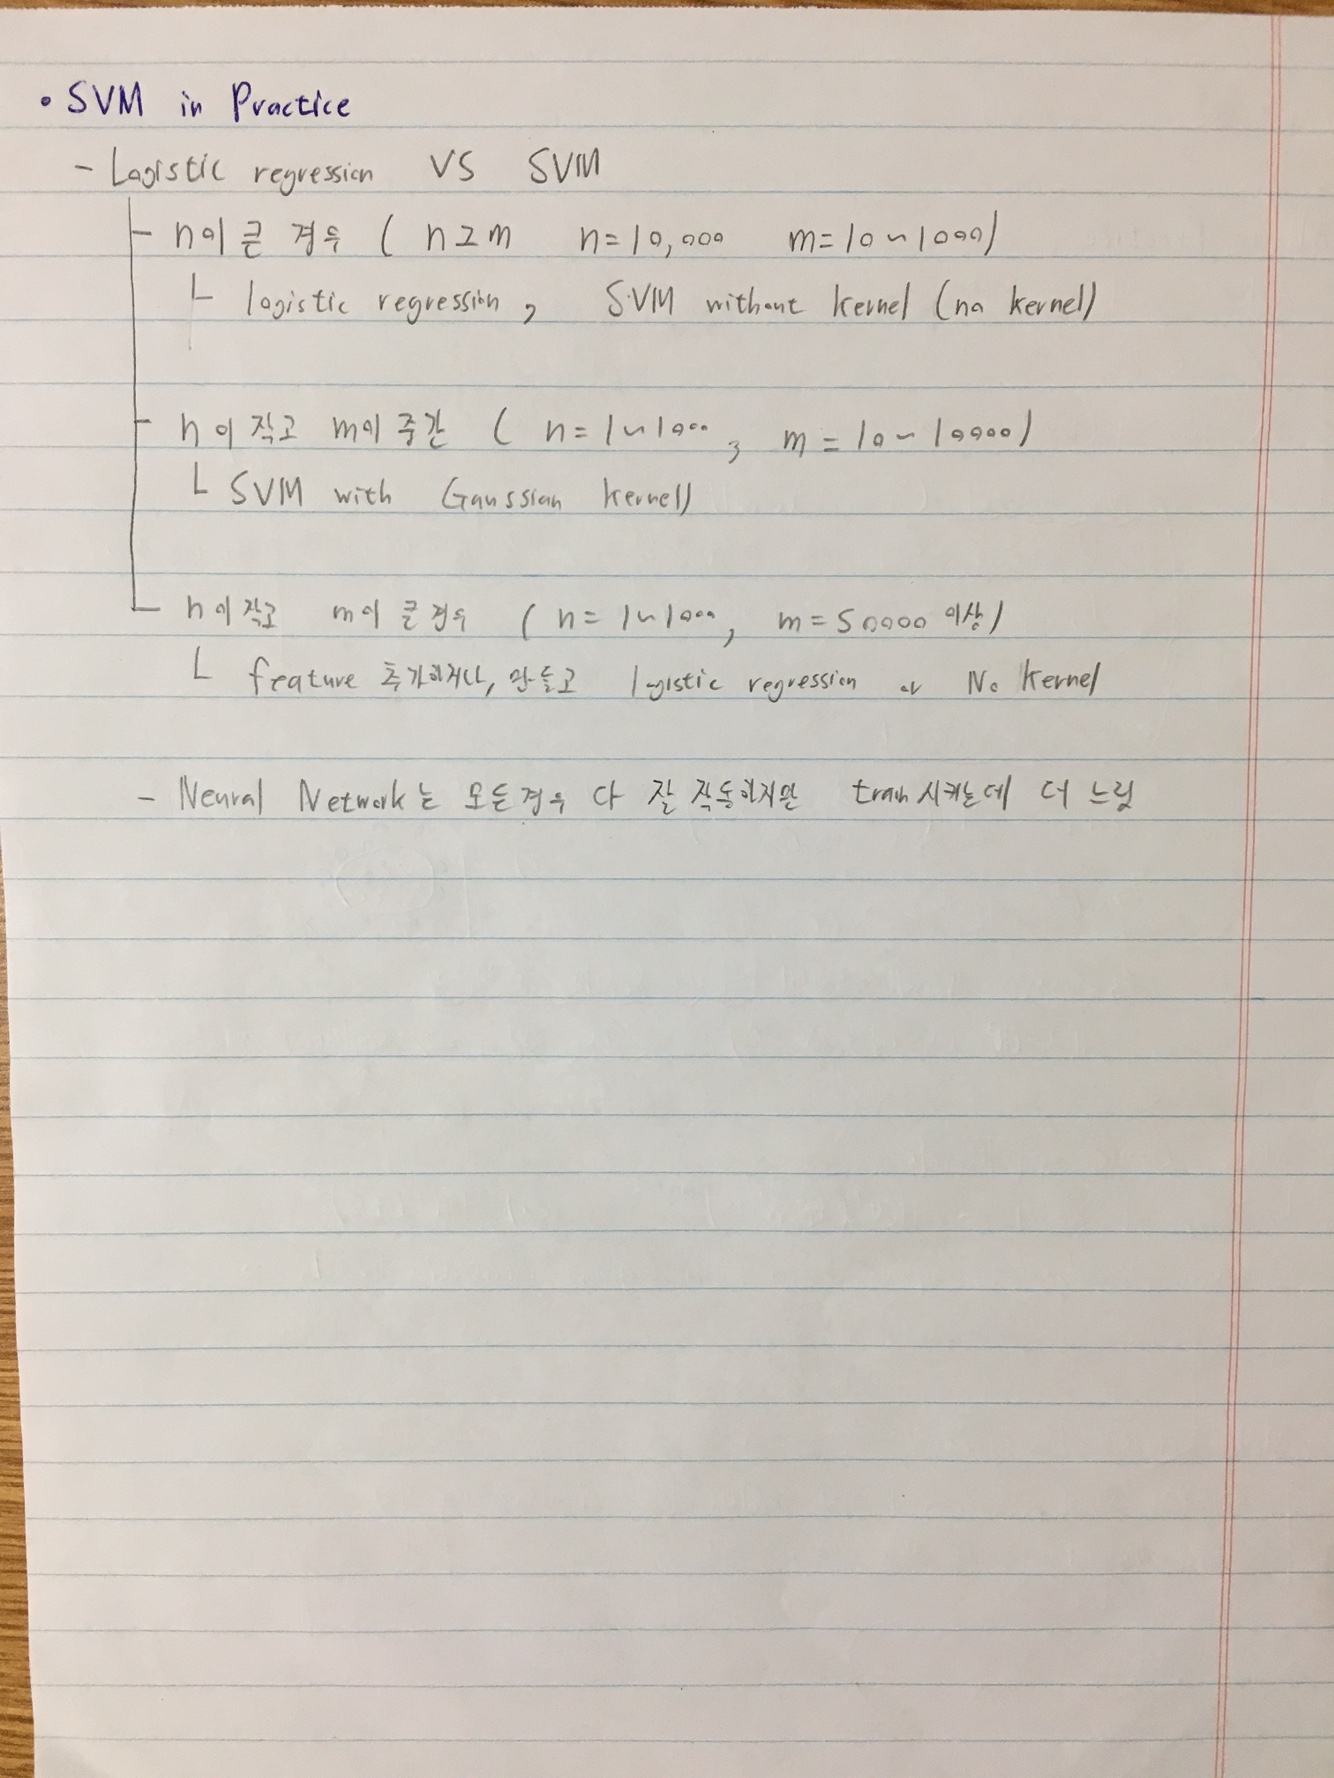 • SVM in Practice
- Logistic regression VS SVM
n이 큰 경우 ( n≥m n=10,000 m=10~1000)
└ logistic regression, SVM without kernel (no kernel)
n이 작고 m이 중간 ( n=1~1000, m=10~10000)
└ SVM with Gaussian kernel)
n이 작고 m이 큰 경우 ( n=1~1000, m=50000 이상)
└ feature 추가하거나, 만들고 logistic regression or No kernel
- Neural Network는 모든경우 다 잘 작동하지만 train시키는데 더 느림